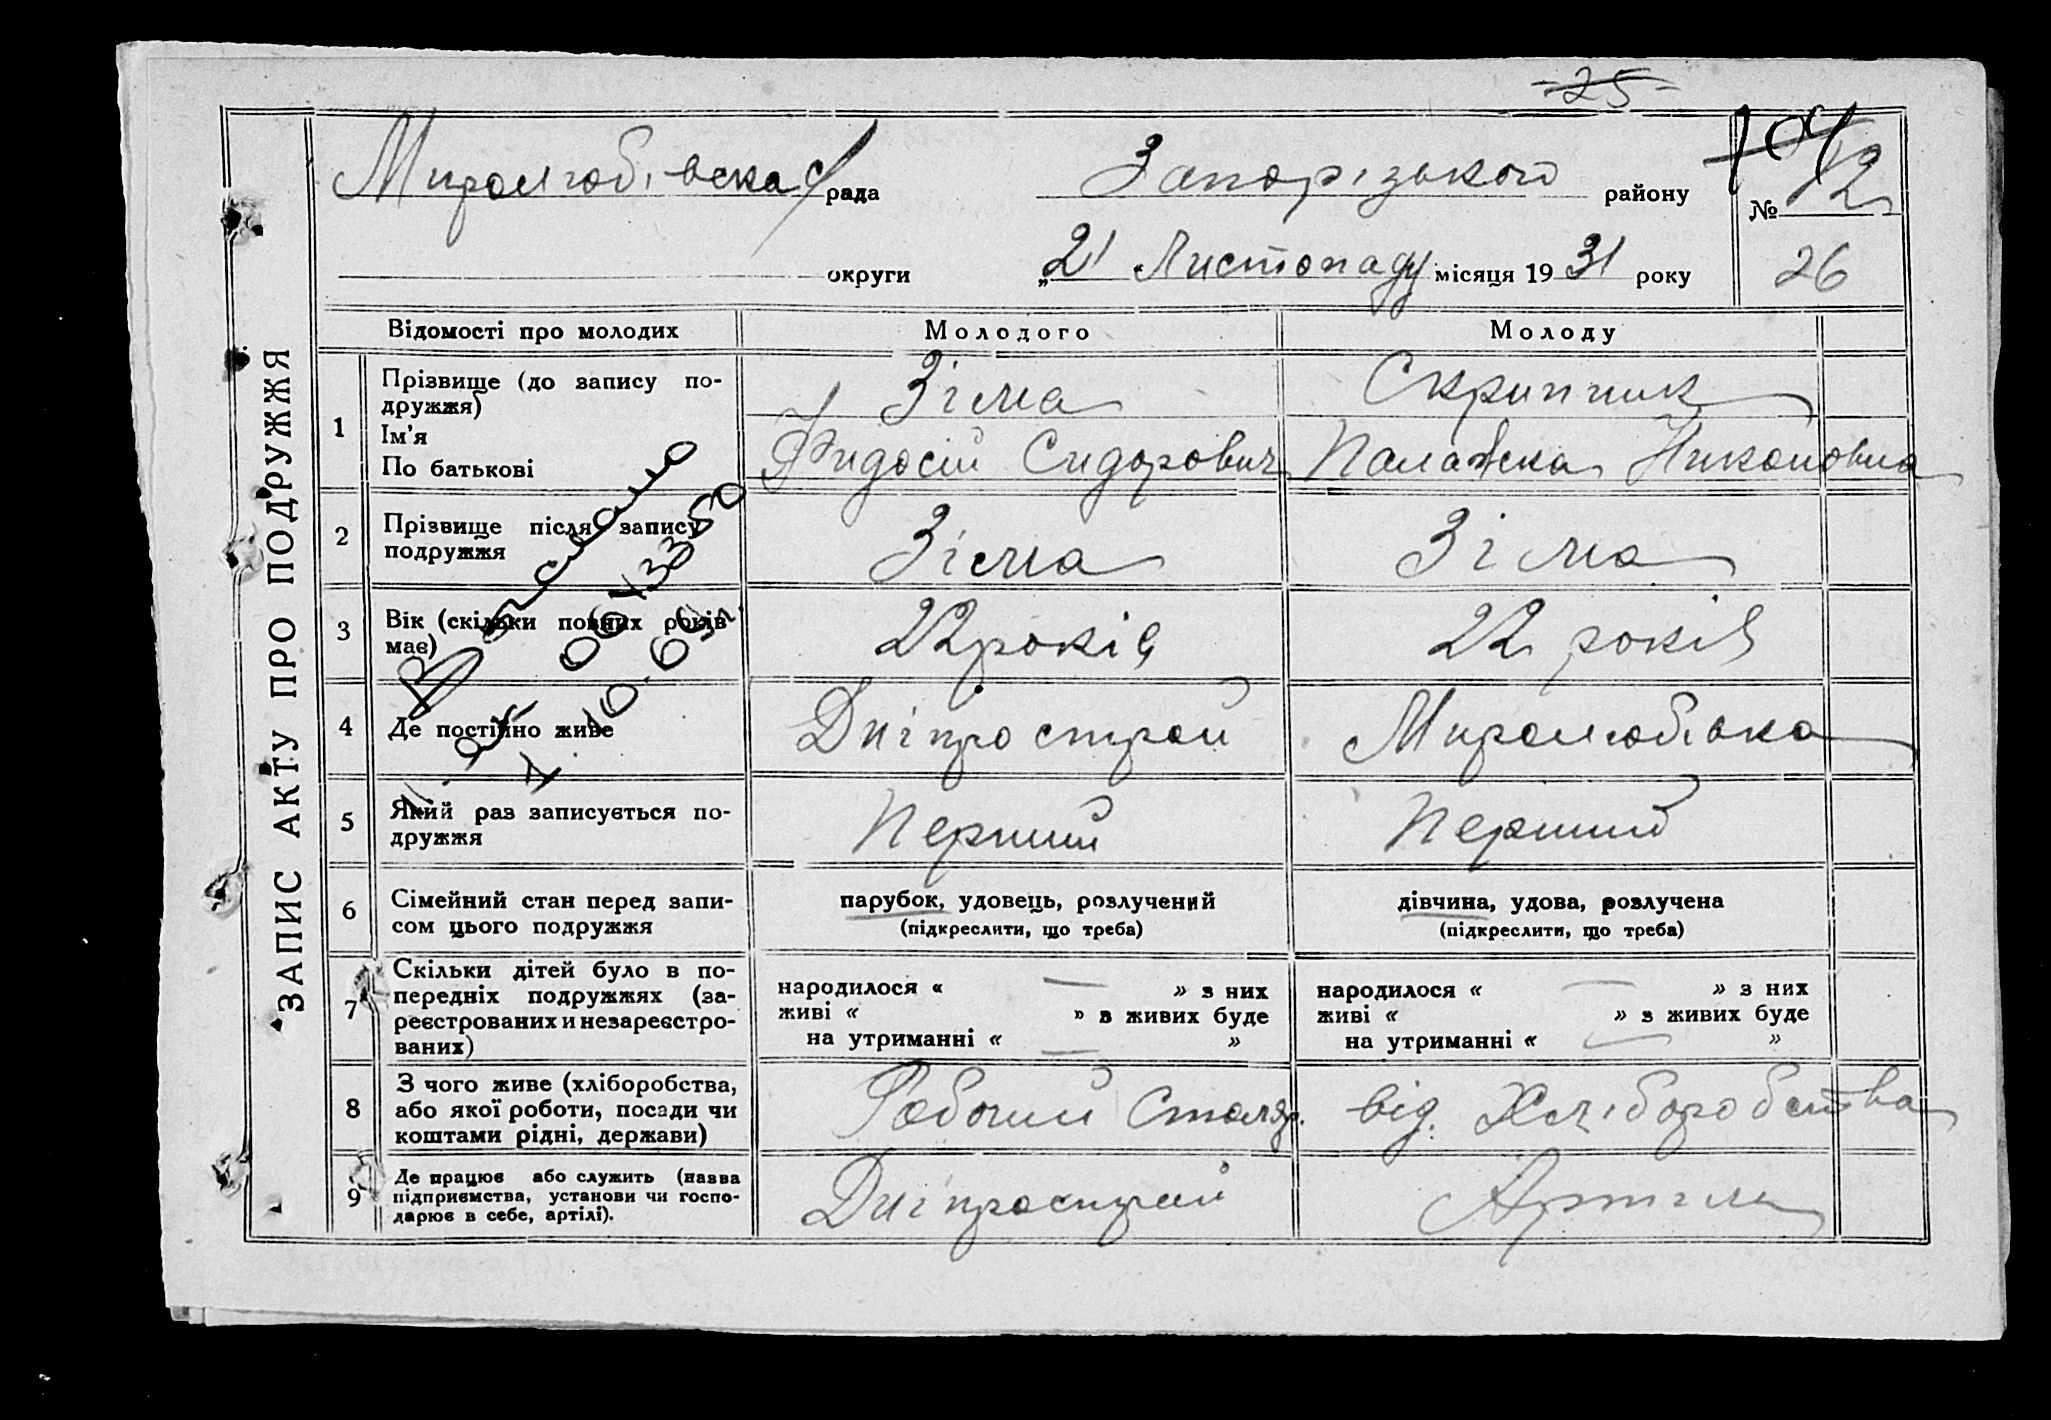 25
Миролюбівска с/рада Запорізького району
№ 12
округи „21 Листопаду місяця 1931 року
26
ЗАПИС АКТУ ПРО ПОДРУЖЖЯ
Відомості про молодих Молодого Молоду
1 Прізвище (до запису по-
дружжя)
Зіма Скрипник
Ім'я
По батькові
Фидосій Сидорович Палажка Никоновна
2 Прізвище після запису
подружжя
Зіма Зіма
3 Вік (скільки повних років
має)
22 років 22 років
4 Де постійно живе Дніпрострой Миролюбівка
5 Який раз записується по-
дружжя
Перший Перший
6 Сімейний стан перед запи-
сом цього подружжя
парубок, удовець, розлучений
(підкреслити, що треба)
дівчина, удова, розлучена
(підкреслити, що треба)
7 Скільки дітей було в по-
передніх подружжях (за-
реєстрованих и незареєстро-
ваних)
народилося « — » з них
живі « » з живих буде
на утриманні « — »
народилося « — » з них
живі « » з живих буде
на утриманні « — »
8 З чого живе (хліборобства,
або якої роботи, посади чи
коштами рідні, держави)
Робочий Столяр. від. Хліборобства
9 Де працює або служить (назва
підприємства, установи чи госпо-
дарює в себе, артілі).
Дніпрострой Артили